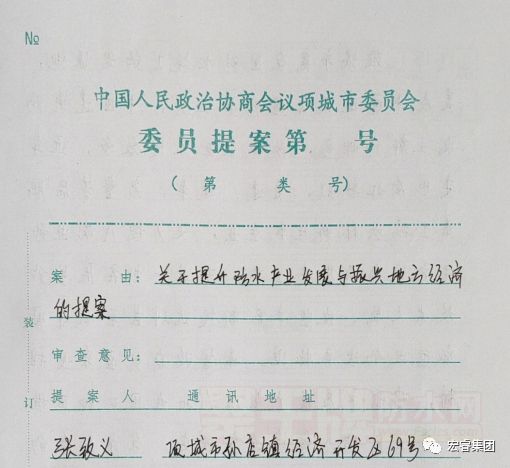 №
中国人民政治协商会议项城市委员会
委员提案第 号
( 第 类 号)
案 由: 关于提升防水产业发展与振兴地方经济
的提案
审查意见:
装
提 案 人 通 讯 地 址
订
张致义 项城市孙店镇经济开发区69号
宏睿集团